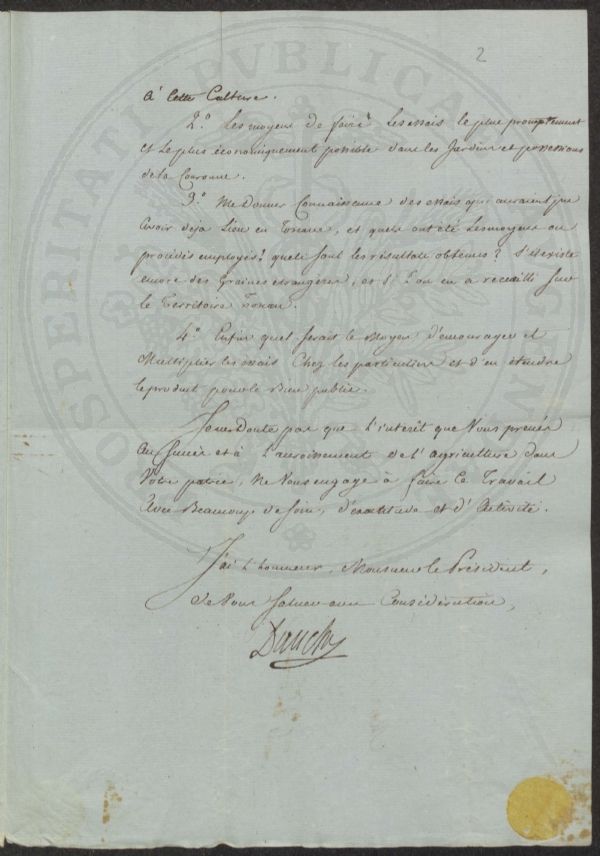 2
à cette Culture.
2.° Les moyens de faire les essais le plus promptement
et le plus économiquement possible dans les Jardins et possessions
de la Couronne.
3.° Me Donner Connaissance des essais qui auraient pu
avoir déja Lieu en Toscane, et quels ont été les moyens ou
procédés employés? quels sont les résultats obtenus? S'il existe
encore des Graines étrangères, et s'il on en a recueilli sur
le Territoire Toscan.
4.° Enfin quel serait le Moyen d'encourager et
Multiplier les essais Chez les particuliers et d'en étendre
le produit pour le Bien public.
Je ne Doute pas que L'intérêt que Vous prenés
au Succès et à L'accroissement de l'agriculture dans
Votre patrie, Ne Vous engage à faire ce Travail
avec Beaucoup de soin, d'exactitude et d'Activité.
J'ai L'honneur, Monsieur le Président,
de Vous Saluer avec Considération,
Dauchy
PROSPERITATI PVBLICAE